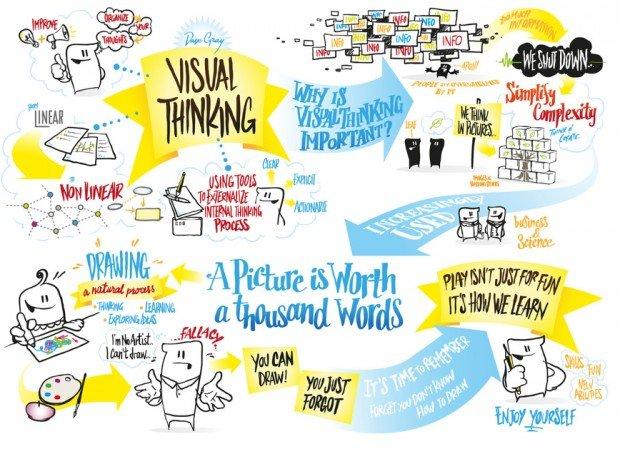 IMPROVE
ORGANIZE
YOUR
THOUGHTS
Dave Gray
VISUAL
THINKING
LINEAR
NON LINEAR
USING TOOLS
TO EXTERNALIZE
INTERNAL THINKING
PROCESS
CLEAR
EXPLICIT
ACTIONABLE
WHY IS
VISUAL THINKING
IMPORTANT?
INFO
INFO
INFO
INFO
INFO
INFO
INFO
INFO
ARGH!
BY IT
TOO MUCH
INFORMATION
WE SHUT DOWN...
Simplify
Complexity
LEAF
WE THINK
IN PICTURES...
INCREASINGLY
USED
business
&
Science
A PICTURE iS WORTH
a thousand WORDS
DRAWING
a natural process
• THINKING
• LEARNING
• EXPLORING IDEAS
I'm No Artist...
I Can't draw...
FALLACY
YOU CAN
DRAW!
YOU JUST
FORGOT
IT'S TIME TO REMEMBER
FORGET YOU DON'T KNOW
HOW TO DRAW
PLAY ISN'T JUST FOR FUN
IT'S HOW WE LEARN
SKILLS
FUN
NEW
ABILITIES
ENJOY YOURSELF